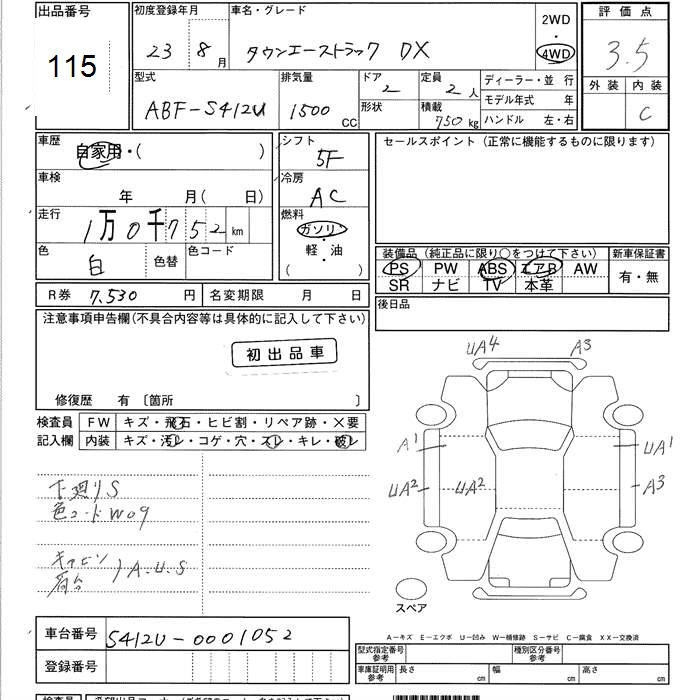 出品番号 初度登録年月 車名・グレード 2WD 評価点
115 23年 8月 タウンエーストラック DX 4WD 3.5
型式 排気量 ドア 2 定員 2人 ディーラー・並 行 外装 内装
ABF-S412U 1500 CC 形状 積載 750kg モデル年式 年 C
ハンドル 左・右
車歴 自家用・( ) シフト 5F セールスポイント(正常に機能するものに限ります)
車検 年 月( 日) 冷房 AC
走行 1万0千752km 燃料 ガソリン・軽・油 ( )
色 白 色替 色コード 装備品(純正品に限り○をつけて下さい) 新車保証書
PS PW ABS エアB AW 有・無
SR ナビ TV 本革
R券 7,530円 名変期限 月 日 後日品
注意事項申告欄(不具合内容等は具体的に記入して下さい)
初出品車
修復歴 有 〔箇所 〕
検査員 FW キズ・飛石・ヒビ割・リペア跡・×要
記入欄 内装 キズ・汚レ・コゲ・穴・スレ・キレ・破レ
UA4 A3
A1 UA1
UA2 UA2 A3
下廻りS
色コードW09
キャビン
荷台 }A.U.S
スペア
A-キズ E-エクボ U-凹み W-補修跡 S-サビ C-腐食 XX-交換済
車台番号 S412U-0001052
登録番号
型式指定番号 参考 種別区分番号 参考
車庫証明用 参考 長さ cm 幅 cm 高さ cm